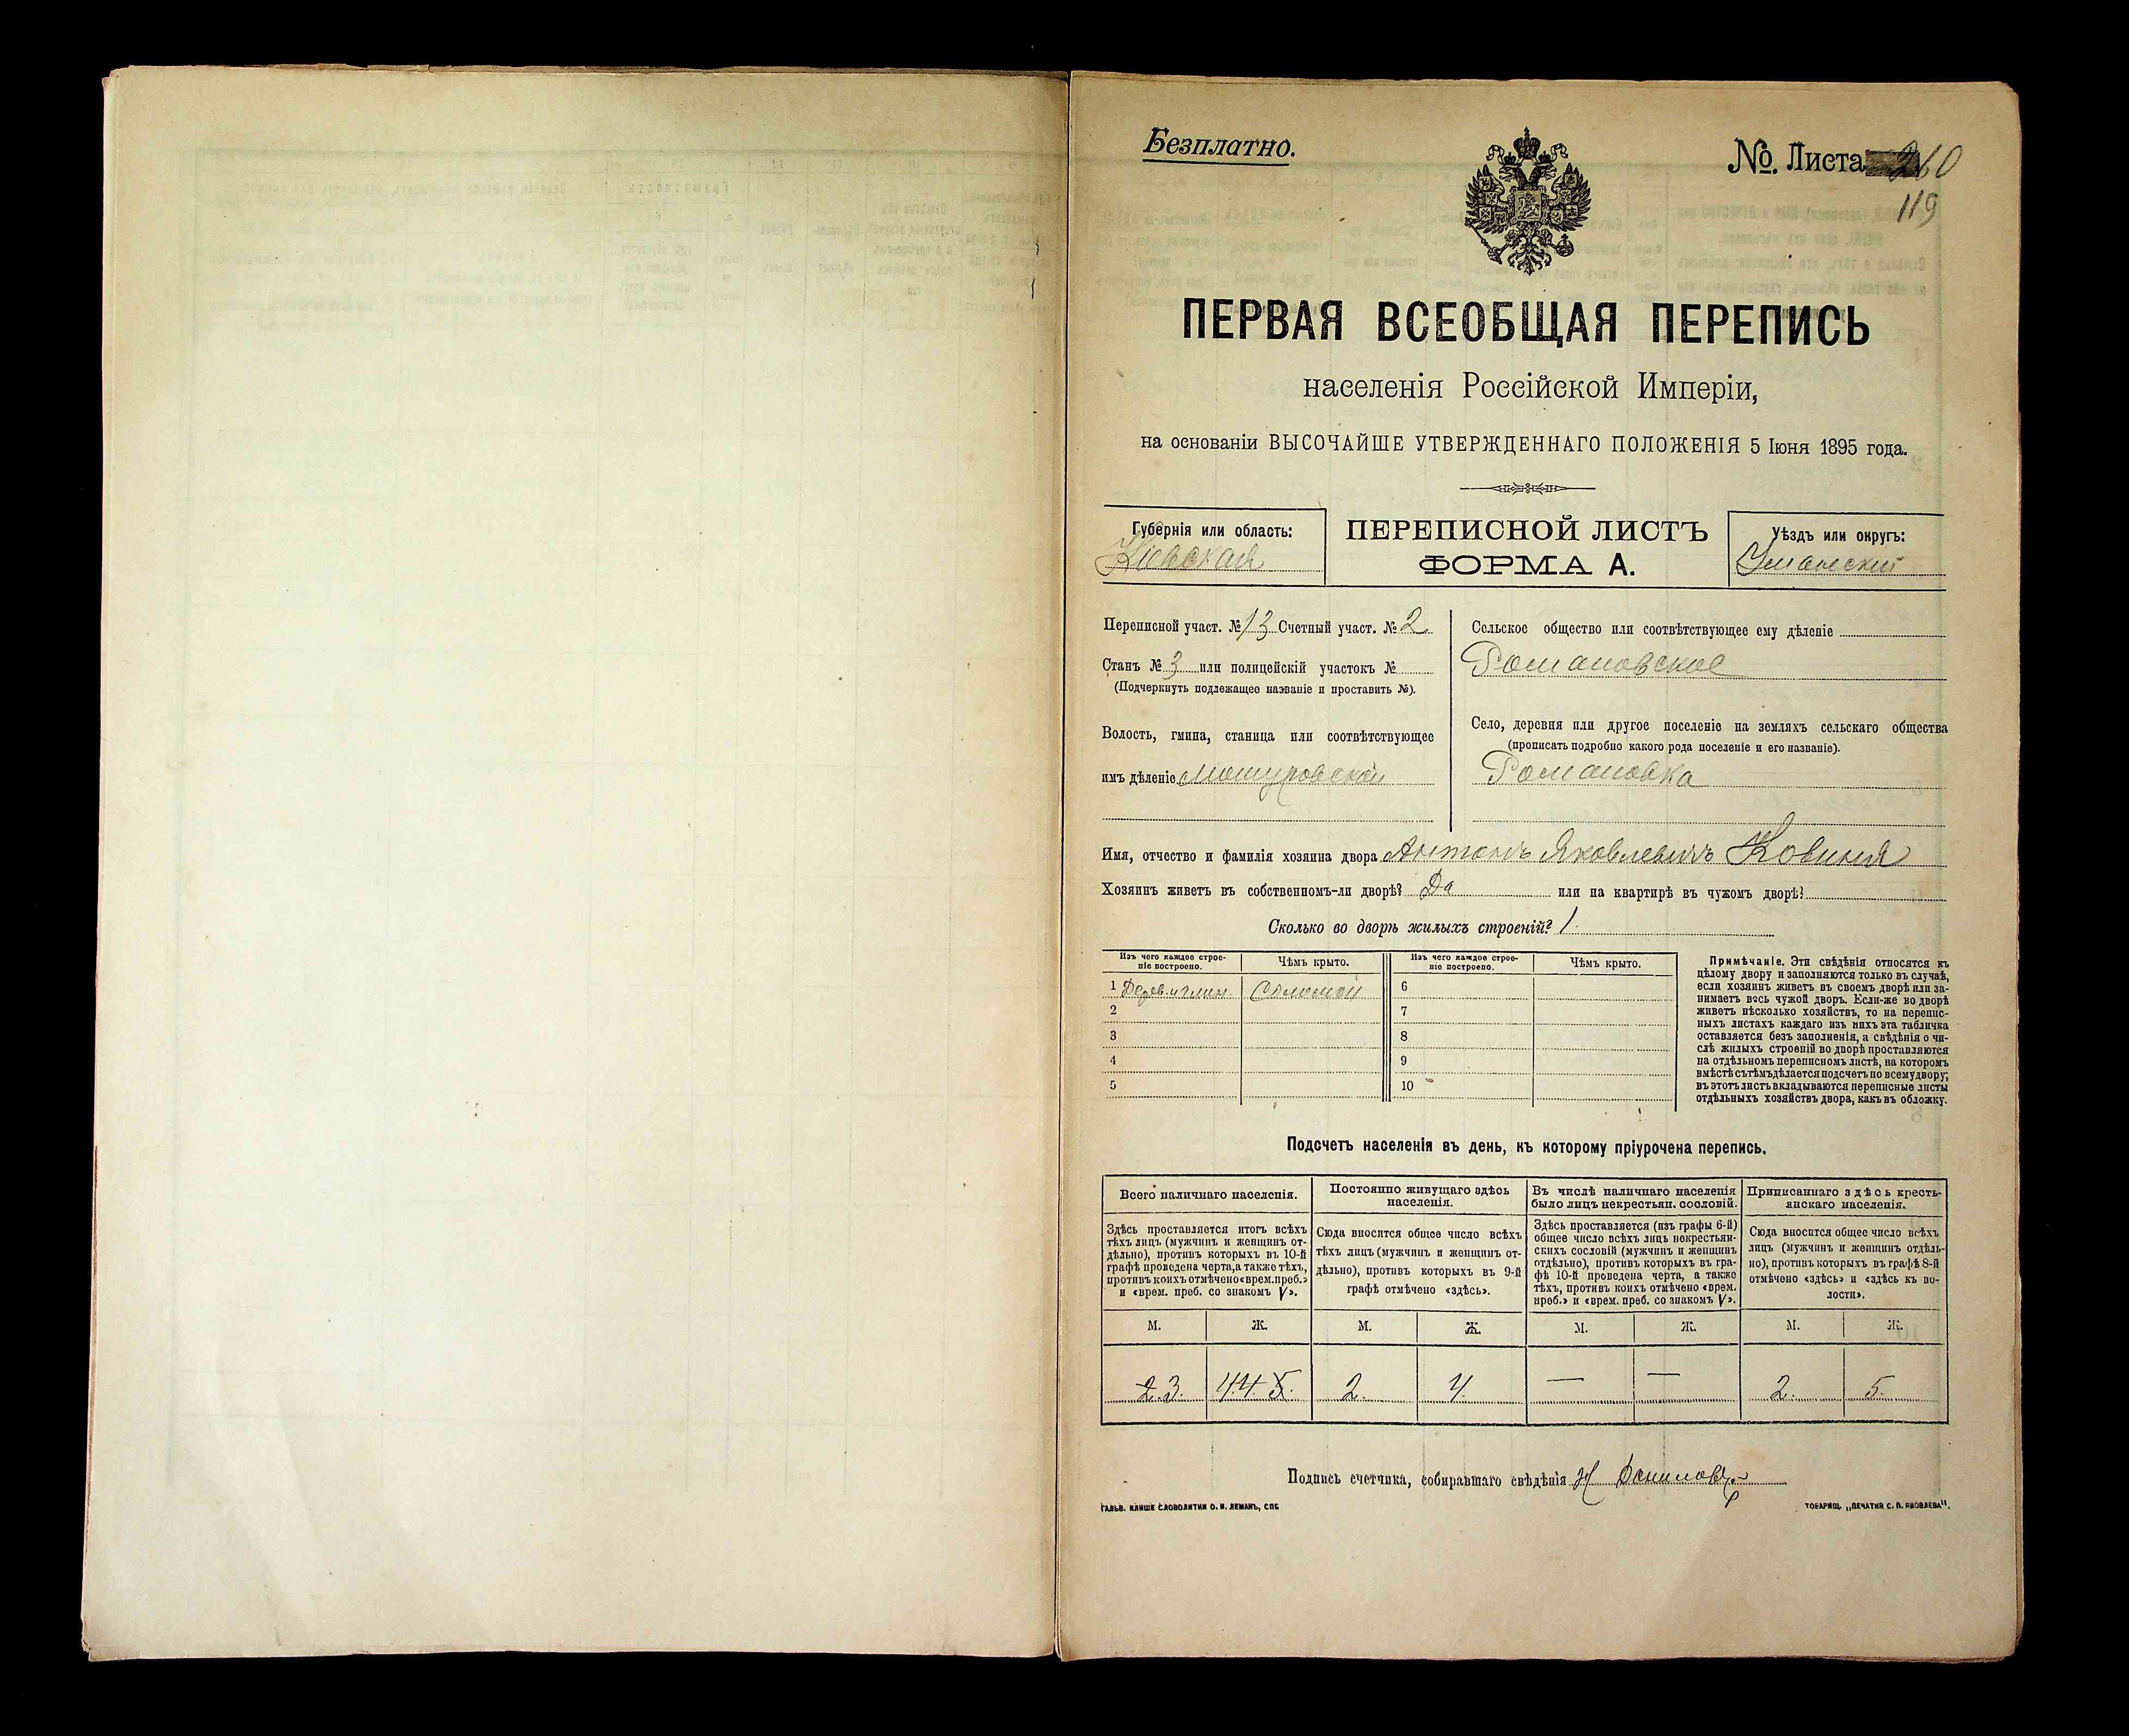 Безплатно.
№. Листа 260
119
ПЕРВАЯ ВСЕОБЩАЯ ПЕРЕПИСЬ
населенія Россійской Имперіи,
на основаніи ВЫСОЧАЙШЕ УТВЕРЖДЕННАГО ПОЛОЖЕНІЯ 5 Іюня 1895 года.
Губернія или область:
Кіевская
ПЕРЕПИСНОЙ ЛИСТЪ
ФОРМА А.
Уѣздъ или округъ:
Уманский
Переписной участ. № 13 Счетный участ. № 2
Станъ № 3 или полицейскій участокъ №
(Подчеркнуть подлежащее названіе и проставить №).
Волость, гмина, станица или соотвѣтствующее
имъ дѣленіе Мошуровской
Сельское общество или соотвѣтствующее ему дѣленіе
Романовское
Село, деревня или другое поселеніе на земляхъ сельскаго общества
(прописать подробно какого рода поселеніе и его названіе).
Романовка
Имя, отчество и фамилія хозяина двора Антонъ Яковлевичъ Ковиня
Хозяинъ живетъ въ собственномъ-ли дворѣ? Да или на квартирѣ въ чужомъ дворѣ?
Сколько во дворѣ жилыхъ строеній? 1.
Изъ чего каждое строе-
ніе построено.
Чѣмъ крыто.
Изъ чего каждое строе-
ніе построено.
Чѣмъ крыто.
1 Дерев. и глин. Соломой 6
2 7
3 8
4 9
5 10
Примѣчаніе. Эти свѣдѣнія относятся къ
цѣлому двору и заполняются только въ случаѣ,
если хозяинъ живетъ въ своемъ дворѣ или за-
нимаетъ весь чужой дворъ. Если-же во дворѣ
живетъ нѣсколько хозяйствъ, то на перепис-
ныхъ листахъ каждаго изъ нихъ эта табличка
оставляется безъ заполненія, а свѣдѣнія о чи-
слѣ жилыхъ строеній во дворѣ проставляются
на отдѣльномъ переписномъ листѣ, на которомъ
вмѣстѣ съ тѣмъ дѣлается подсчетъ по всему двору;
въ этотъ листъ вкладываются переписные листы
отдѣльныхъ хозяйствъ двора, какъ въ обложку.
Подсчетъ населенія въ день, къ которому пріурочена перепись.
Всего наличнаго населенія.
Здѣсь проставляется итогъ всѣхъ
тѣхъ лицъ (мужчинъ и женщинъ от-
дѣльно), противъ которыхъ въ 10-й
графѣ проведена черта, а также тѣхъ,
противъ коихъ отмѣчено «врем. преб.»
и «врем. преб. со знакомъ V».
Постоянно живущаго здѣсь
населенія.
Сюда вносится общее число всѣхъ
тѣхъ лицъ (мужчинъ и женщинъ от-
дѣльно), противъ которыхъ въ 9-й
графѣ отмѣчено «здѣсь».
Въ числѣ наличнаго населенія
было лицъ некрестьян. сословій.
Здѣсь проставляется (изъ графы 6-й)
общее число всѣхъ лицъ некрестьян-
скихъ сословій (мужчинъ и женщинъ
отдѣльно), противъ которыхъ въ гра-
фѣ 10-й проведена черта, а также
тѣхъ, противъ коихъ отмѣчено «врем.
преб.» и «врем. преб. со знакомъ V».
Приписаннаго здѣсь кресть-
янскаго населенія.
Сюда вносится общее число всѣхъ
лицъ (мужчинъ и женщинъ отдѣль-
но), противъ которыхъ въ графѣ 8-й
отмѣчено «здѣсь» и «здѣсь къ во-
лости».
М. Ж. М. Ж. М. Ж. М. Ж.
2 3. 4. 4. 5. 2. 4. — — 2. 5.
Подпись счетчика, собиравшаго свѣдѣнія
ГАЛЬВ. КЛИШЕ СЛОВОЛИТНИ О. И. ЛЕМАНЪ, СПБ
ТОВАРИЩ. „ПЕЧАТНЯ С. П. ЯКОВЛЕВА“.